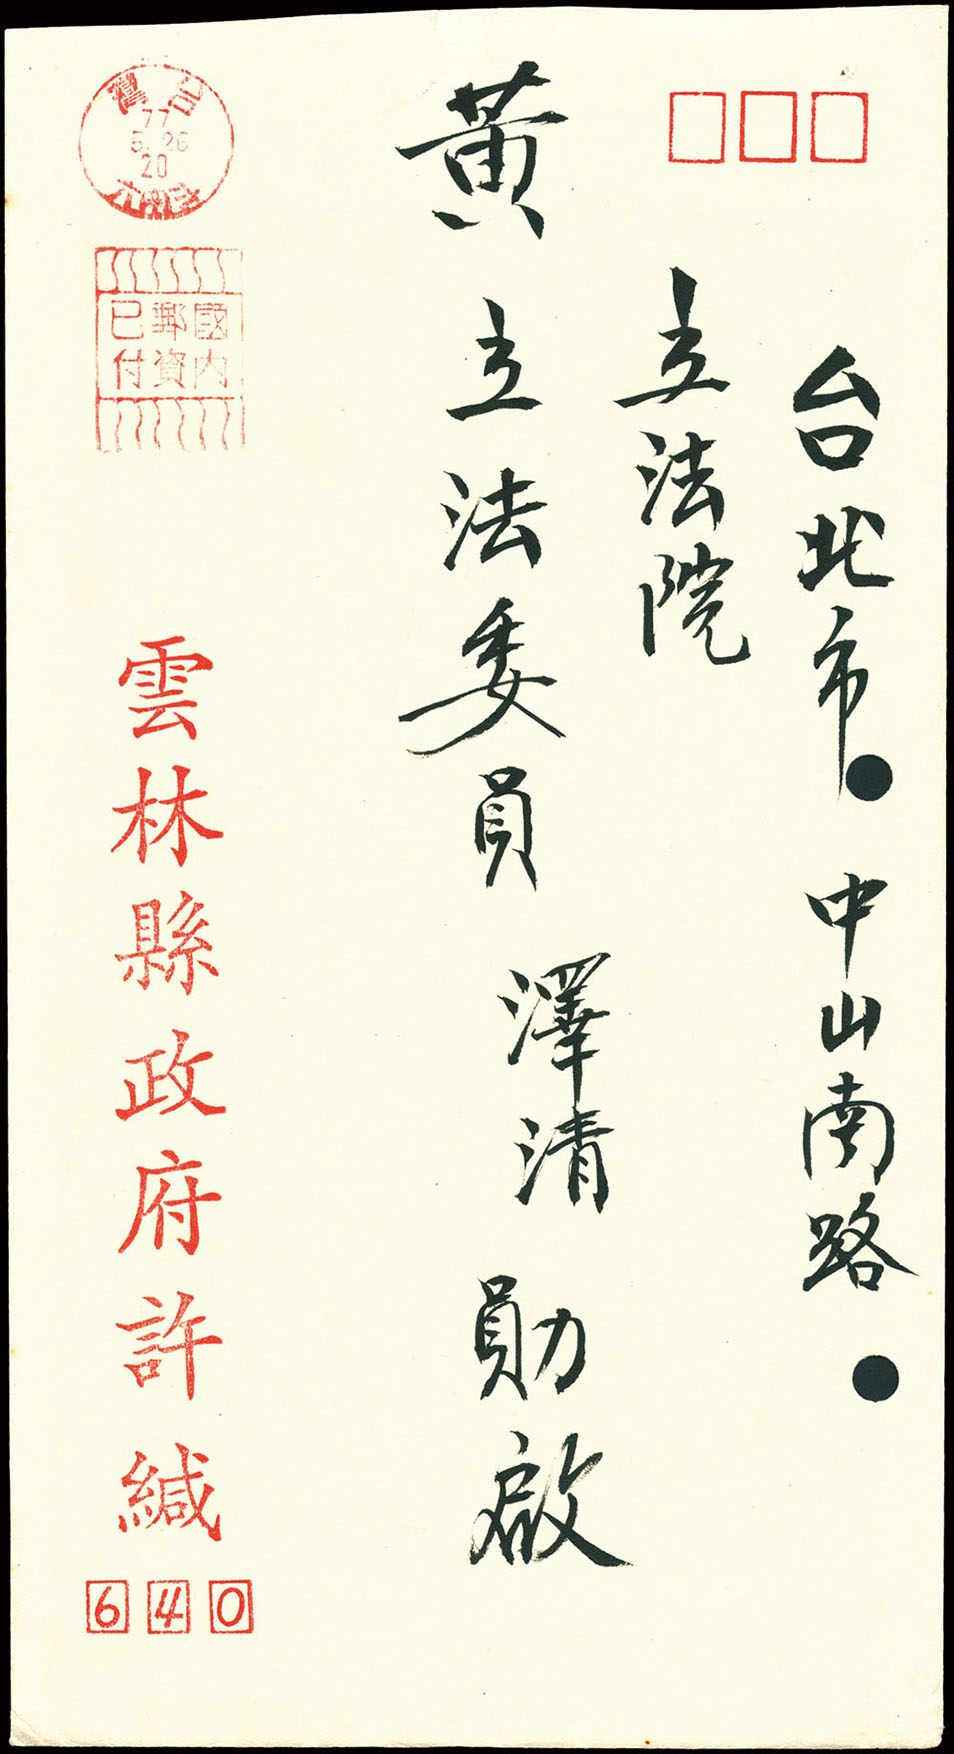 台北市 中山南路
立法院
黃 立法委員 澤清 勛啟
台
77
5.26
20
國內
郵資
已付
雲林縣政府許緘
640